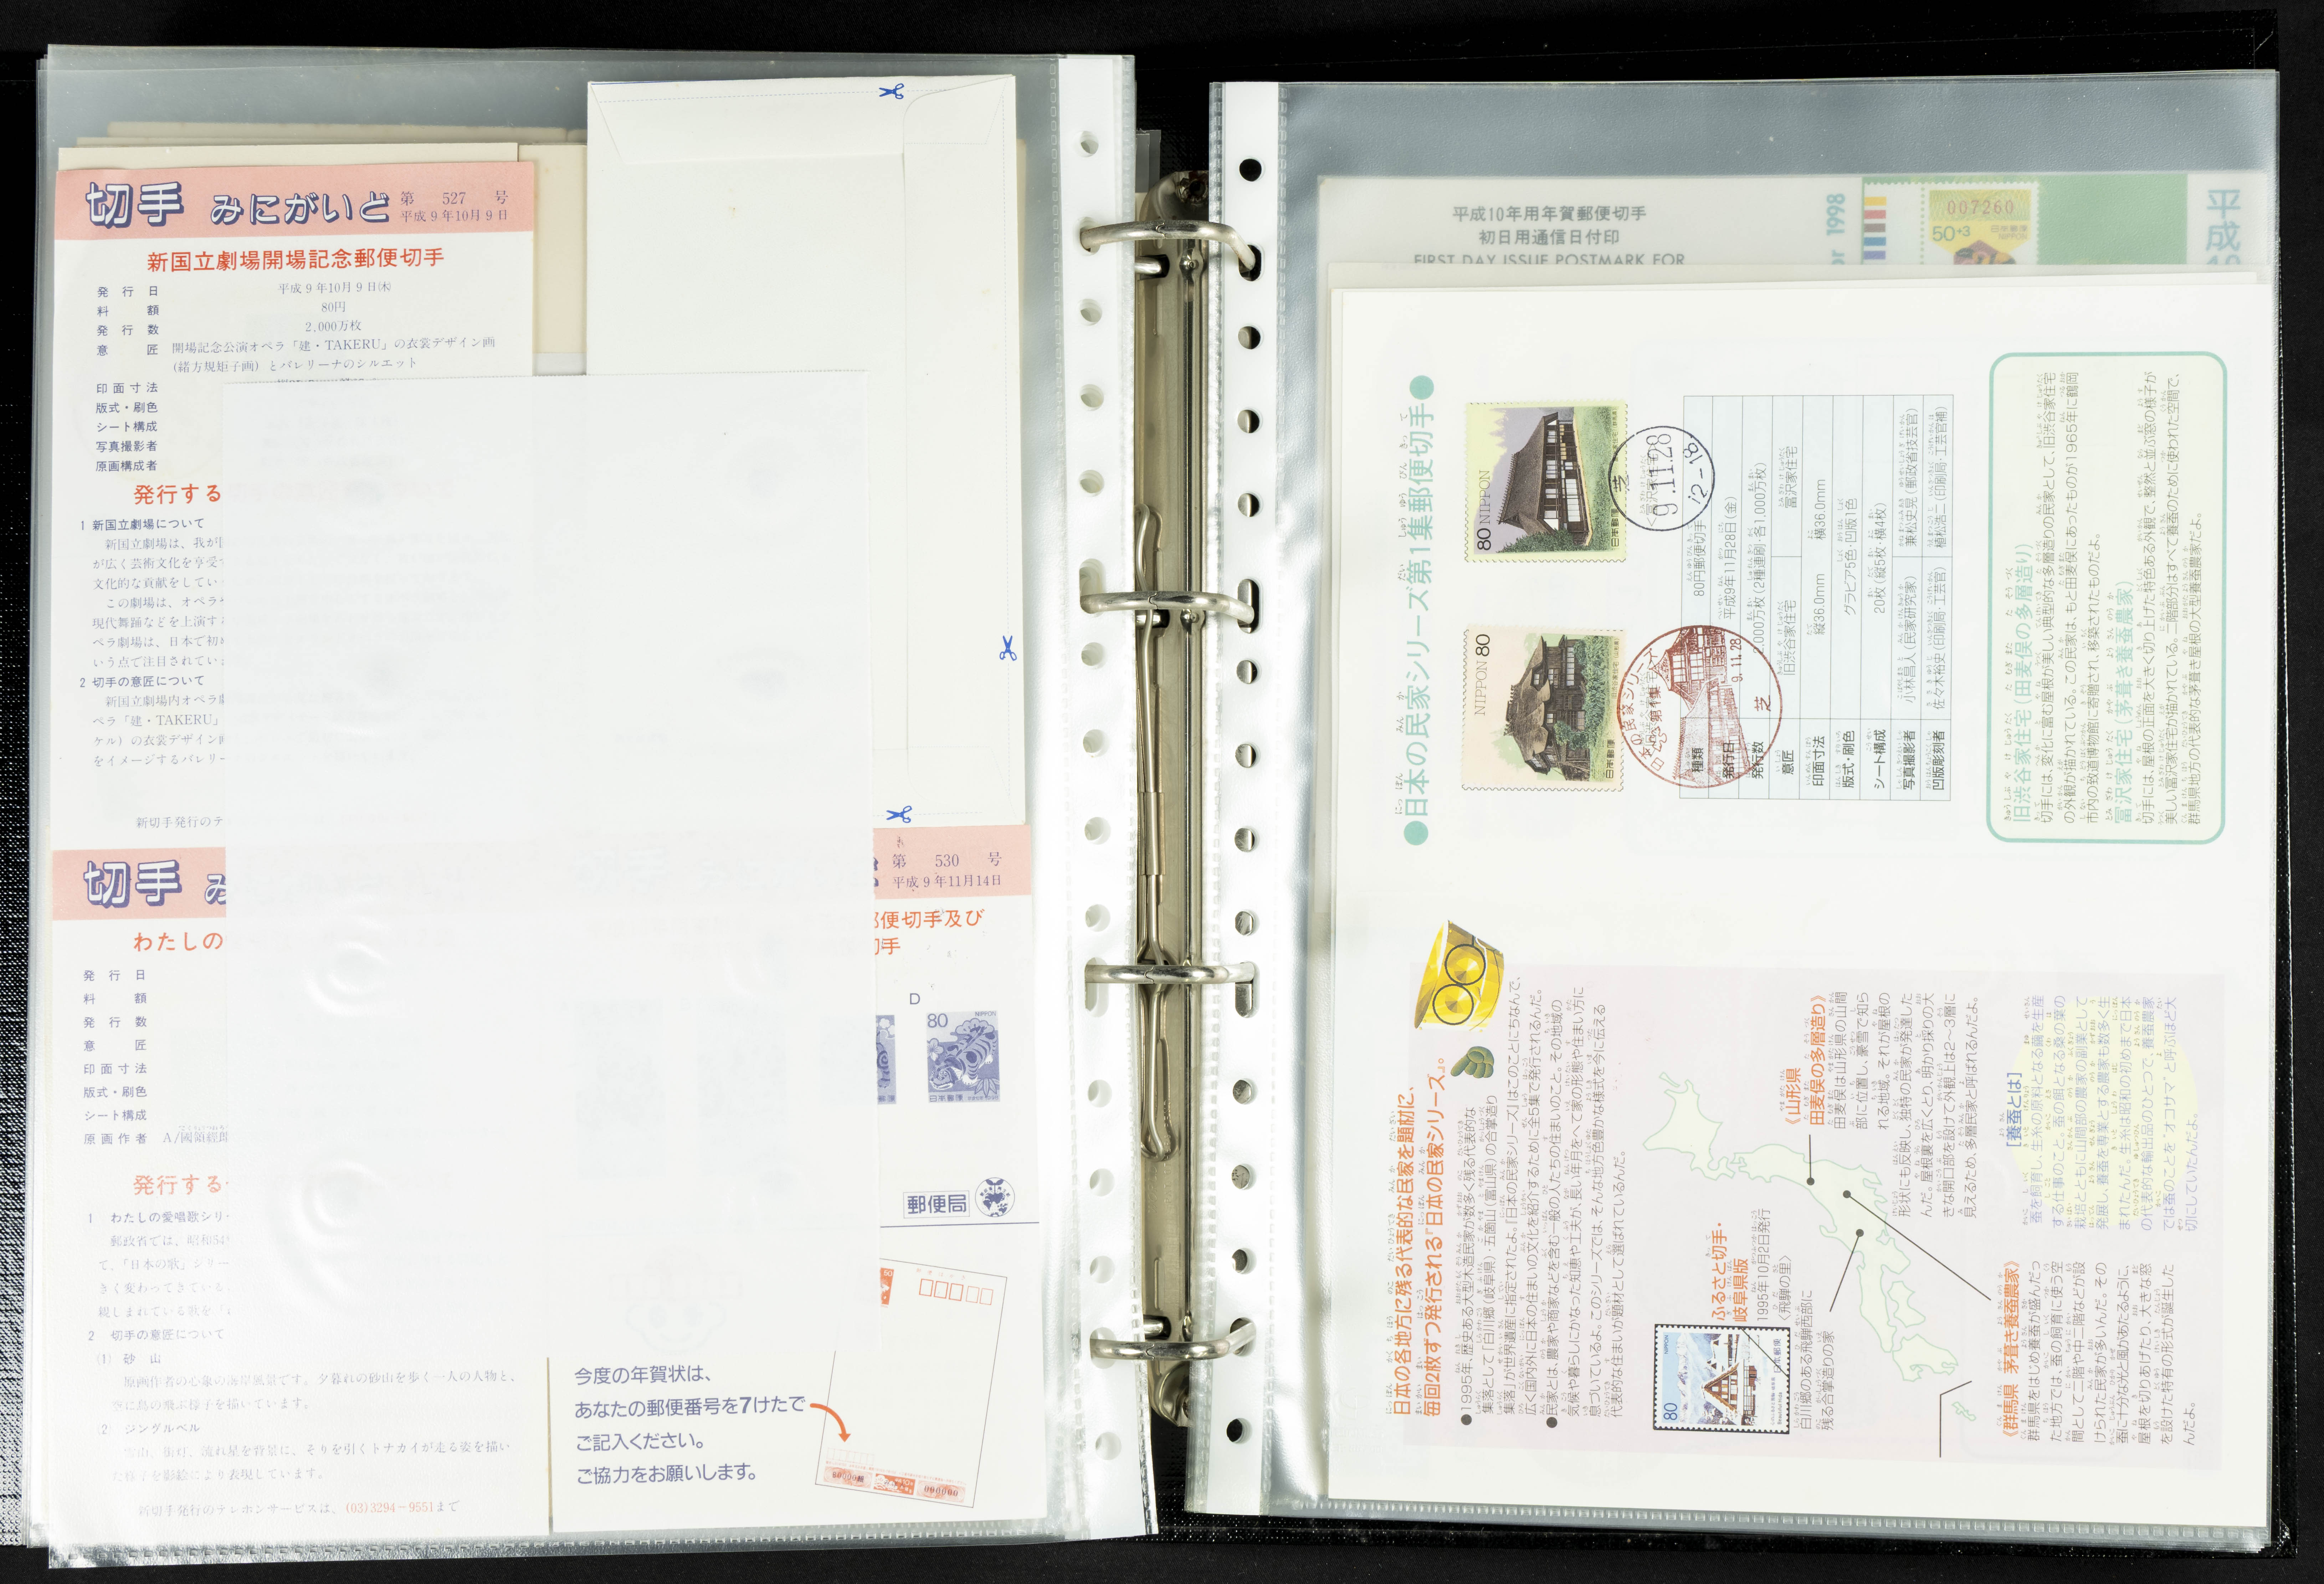 切手 みにがいど 第 527 号
平成9年10月9日
新国立劇場開場記念郵便切手
発行日 平成9年10月9日㈭
料額 80円
発行数 2,000万枚
意匠 開場記念公演オペラ「建・TAKERU」の衣裳デザイン画
(緒方規矩子画)とバレリーナのシルエット
印面寸法
版式・刷色
シート構成
写真撮影者
原画構成者
発行する
1 新国立劇場について
新国立劇場は、我が
が広く芸術文化を享受
文化的な貢献をしてい
この劇場は、オペラ
現代舞踊などを上演す
ペラ劇場は、日本で初
いう点で注目されてい
2 切手の意匠について
新国立劇場内オペラ
ペラ「建・TAKERU」
ケル)の衣裳デザイン
をイメージするバレリー
新切手発行のテ
切手 み
わたしの
発行日
料額
発行数
意匠
印面寸法
版式・刷色
シート構成
原画作者 A/國領經郎
発行する
1 わたしの愛唱歌シリ
郵政省では、昭和54
て、「日本の歌」シリー
きく変わってきている
親しまれている歌を「
2 切手の意匠について
(1) 砂山
原画作者の心象の海岸風景です。夕暮れの砂山を歩く一人の人物と、
空に鳥の飛ぶ様子を描いています。
(2) ジングルベル
雪山、街灯、流れ星を背景に、そりを引くトナカイが走る姿を描い
た様子を影絵により表現しています。
新切手発行のテレホンサービスは、(03)3294-9551まで
第 530 号
平成9年11月14日
郵便切手及び
切手
D
80 NIPPON
日本郵便
郵便局
今度の年賀状は、
あなたの郵便番号を7けたで
ご記入ください。
ご協力をお願いします。
50
000000
平成10年用年賀郵便切手
初日用通信日付印
FIRST DAY ISSUE POSTMARK FOR
or 1998
007260
50+3 日本郵便
NIPPON
平成
●日本の民家シリーズ第1集郵便切手●
NIPPON 80
日本郵便
80 NIPPON
日本郵便
日本の民家シリーズ
第1集
9.11.28
芝
芝
9.11.28
12-18
種類 80円郵便切手
発行日 平成9年11月28日(金)
発行数 2,000万枚(2種連刷・各1,000万枚)
意匠 旧渋谷家住宅 富沢家住宅
印面寸法 縦36.0mm 横36.0mm
版式・刷色 グラビア5色・凹版1色
シート構成 20枚(縦5枚・横4枚)
写真撮影者 小林昌人(民家研究家) 兼松史晃(郵政省技芸官)
凹版彫刻者 佐々木裕史(印刷局・工芸官) 植松浩二(印刷局・工芸官補)
旧渋谷家住宅(田麦俣の多層造り)
切手には、変化に富む屋根が美しい典型的な多層造りの民家として、旧渋谷家住宅
の外観が描かれている。この民家は、もと田麦俣にあったものが1965年に鶴岡
市内の致道博物館に寄贈され、移築されたものだよ。
富沢家住宅(茅葺き養蚕農家)
切手には、屋根の正面を大きく切り上げた特色ある外観で、整然と並ぶ窓の様子が
美しい富沢家住宅が描かれている。二階部分はすべて養蚕のために使われた空間で、
群馬県地方の代表的な茅葺き屋根の大型養蚕農家だよ。
日本の各地方に残る代表的な民家を題材に、
毎回2枚ずつ発行される『日本の民家シリーズ』。
●1995年、歴史ある大型木造民家が数多く残る代表的な
集落として「白川郷(岐阜県)・五箇山(富山県)の合掌造り
集落」が世界遺産に指定されたよ。『日本の民家シリーズ』はこのことにちなんで、
広く国内外に日本の住まいの文化を紹介するために全5集で発行されるんだ。
●民家とは、農家や商家などを含む一般の人たちの住まいのこと。その地域の
気候や暮らしにかなった知恵や工夫が、長い年月をへて家の形態や住まい方に
息づいているよ。このシリーズでは、そんな地方色豊かな様式を今に伝える
代表的な住まいが題材として選ばれているんだ。
80 NIPPON
日本郵便
ふるさと切手・
岐阜県版
1995年10月2日発行
〈飛騨の里〉
白川郷のある飛騨西部に
残る合掌造りの家
《山形県
田麦俣の多層造り》
田麦俣は山形県の山間
部に位置し、豪雪で知ら
れる地域。それが屋根の
形状にも反映し、独特の民家が発達した
んだ。屋根裏を広くとり、明かり採りの大
きな開口部を設けて外観上は2〜3層に
見えるため、多層民家と呼ばれるんだよ。
《群馬県 茅葺き養蚕農家》
群馬県をはじめ養蚕が盛んだっ
た地方では、蚕の飼育に使う空
間として二階や中二階などが設
けられた民家が多いんだ。その
蚕に十分な光と風があたるように、
屋根を切りあげたり、大きな窓
を設けた特有の形式が誕生した
んだよ。
[養蚕とは]
蚕を飼育し、生糸の原料となる繭を生産
する仕事のこと。蚕の餌となる桑の葉の
栽培とともに山間部の農家の副業として
発展し、養蚕を専業とする農家も数多く生
まれたんだ。生糸は昭和の初めまで日本
の代表的な輸出品のひとつで、養蚕農家
では蚕のことを“オコサマ”と呼ぶほど大
切にしていたんだよ。